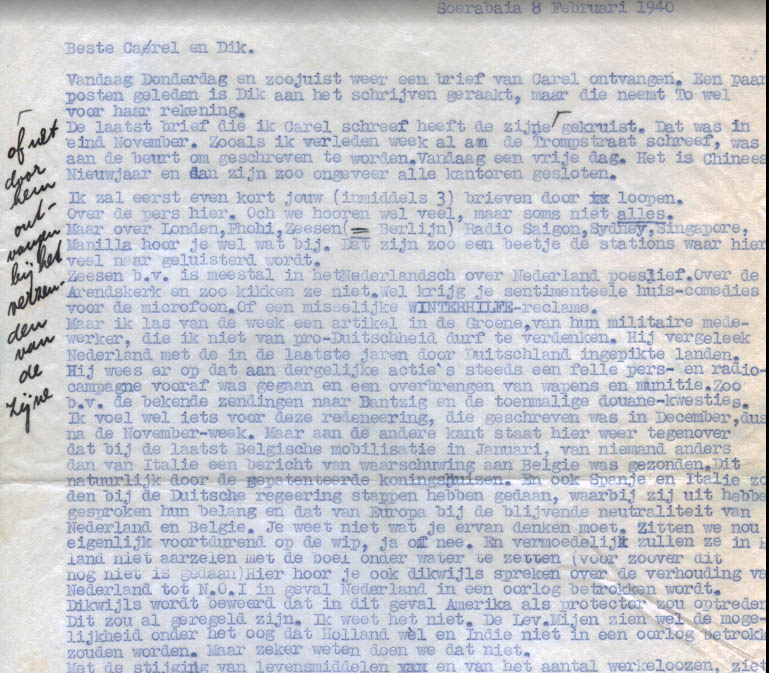 Soerabaia 8 Februari 1940
Beste Carel en Dik.
Vandaag Donderdag en zoojuist weer een brief van Carel ontvangen. Een paar
posten geleden is Dik aan het schrijven geraakt, maar die neemt To wel
voor haar rekening.
De laatst brief die ik Carel schreef heeft de zijne gekruist. Dat was in
eind November. Zooals ik verleden week al aan de Trompstraat schreef, was
aan de beurt om geschreven te worden.Vandaag een vrije dag. Het is Chinees
Nieuwjaar en dan zijn zoo ongeveer alle kantoren gesloten.
Ik zal eerst even kort jouw (inmiddels 3) brieven door loopen.
Over de pers hier. Och we hooren wel veel, maar soms niet alles.
Maar over Londen,Phohi,Zeesen(= Berlijn) Radio Saigon,Sydney,Singapore,
Manilla hoor je wel wat bij. Dat zijn zoo een beetje de stations waar hier
veel naar geluisterd wordt.
Zeesen b.v. is meestal in hetNederlandsch over Nederland poeslief.Over de
Arendskerk en zoo kikken ze niet.Wel krijg je sentimenteele huis-comedies
voor de microfoon.Of een misselijke WINTERHILFE-reclame.
Maar ik las van de week een artikel in de Groene,van hun militaire mede-
werker, die ik niet van pro-Duitschheid durf te verdenken. Hij vergeleek
Nederland met de in de laatste jaren door Duitschland ingepikte landen.
Hij wees er op dat aan dergelijke actie's steeds een felle pers- en radio-
campagne vooraf was gegaan en een overbrengen van wapens en munitie.Zoo
b.v. de bekende zendingen naar Dantzig en de toenmalige douane-kwesties.
Ik voel wel iets voor deze redeneering, die geschreven was in December,dus
na de November-week. Maar aan de andere kant staat hier weer tegenover
dat bij de laatst Belgische mobilisatie in Januari, van niemand anders
dan van Italie een bericht van waarschuwing aan Belgie was gezonden.Dit
natuurlijk door de gepatenteerde koningshuizen. En ook Spanje en Italie zo
den bij de Duitsche regeering stappen hebben gedaan, waarbij zij uit hebbe
gesproken hun belang en dat van Europa bij de blijvende neutraliteit van
Nederland en Belgie. Je weet niet wat je ervan denken moet. Zitten we nou
eigenlijk voortdurend op de wip, ja of nee. En vermoedelijk zullen ze in H
land niet aarzelen met de boel onder water te zetten (voor zoover dit
nog niet is gedaan)Hier hoor je ook dikwijls spreken over de verhouding va
Nederland tot N.O.I in geval Nederland in een oorlog betrokken wordt.
Dikwijls wordt beweerd dat in dit geval Amerika als protector zou optreden
Dit zou al geregeld zijn. Ik weet het niet. De Lev.Mijen zien wel de moge-
lijkheid onder het oog dat Holland wèl en Indie niet in een oorlog betrokk
zouden worden. Maar zeker weten doen we dat niet.
Met de stijging van levensmiddelen en van het aantal werkeloozen, ziet
of net
door
hem
ont-
vangen
bij het
verzen-
den
van
de
zijne